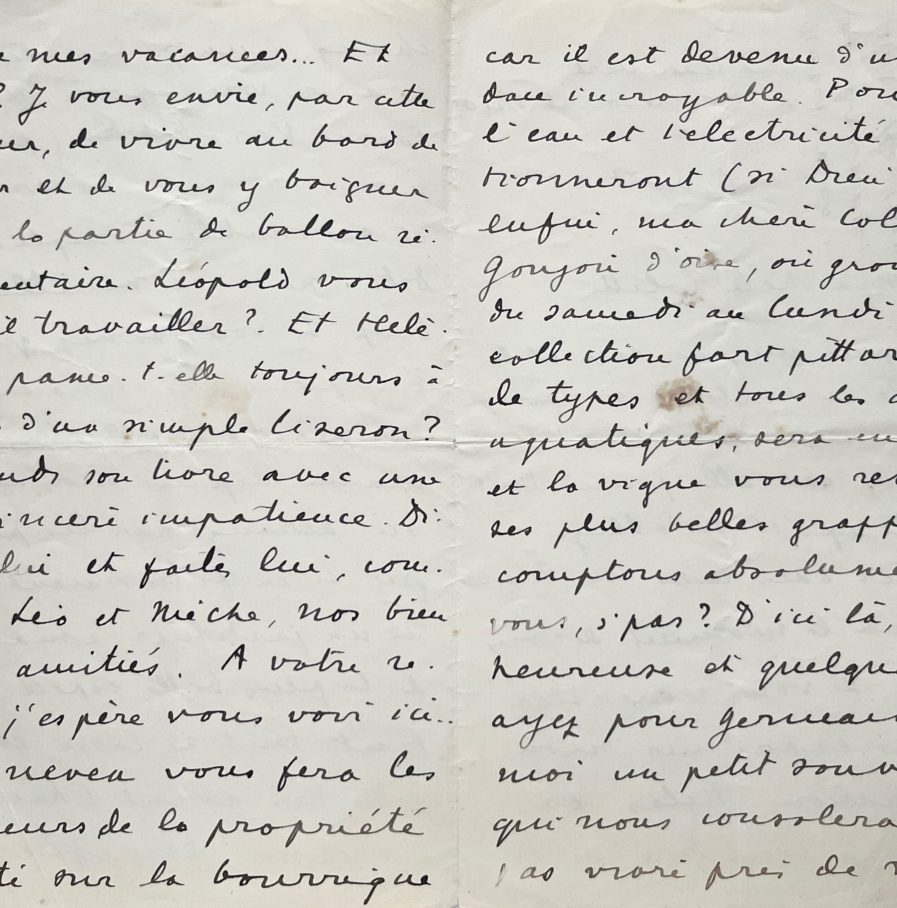 mes vacances... Et
? Je vous envie, par cette
, de vivre au bord de
et de vous y baigner
la partie de ballon ré-
mentaire. Léopold vous
il travailler ?. Et Hélè-
panse-t-elle toujours à
d'un simple liseron ?
son livre avec une
incère impatience. Di-
lui et faites lui, com-
Léo et Mèche, nos bien
amitiés. A votre re-
j'espère vous voir ici..
neveu vous fera les
eurs de la propriété
sur la bourrique
car il est devenu d'u
incroyable. Pou
l'eau et l'électricité
tionneront (si Dieu
enfin, ma chère Col
Goujon d'oise, où grou
du samedi au lundi
collection fort pittor
de types et tous les
aquatiques, sera
et la vigne vous
ses plus belles grapp
comptons absolume
vous, s'pas ? D'ici là,
heureuse et quelque
ayez pour Germai
moi un petit souv
qui nous consolera
pas vivre près de